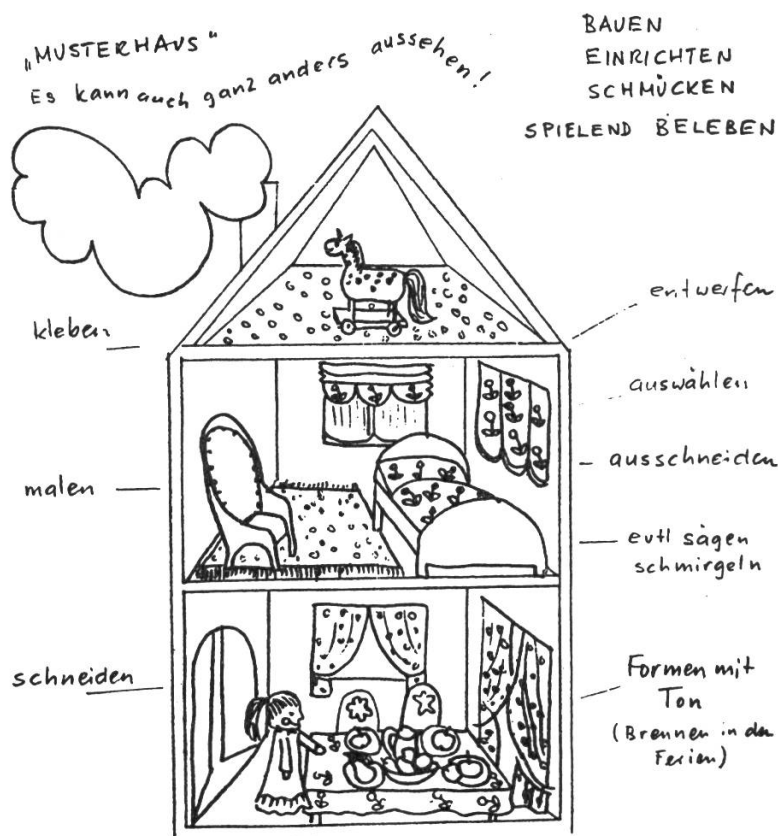 „MUSTERHAUS"
Es kann auch ganz anders aussehen!
BAUEN
EINRICHTEN
SCHMÜCKEN
SPIELEND BELEBEN
kleben
malen
schneiden
entwerfen
auswählen
ausschneiden
evtl sägen
schmirgeln
Formen mit
Ton
(Brennen in den
Ferien)